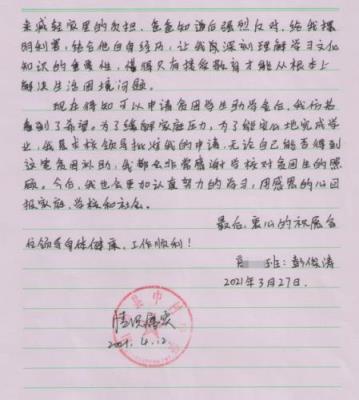 来减轻家里的负担,爸爸知道后强烈反对,给我摆
明利害,结合他自身经历,让我深刻理解学习文化
知识的重要性,懂得只有接受教育才能从根本上
解决生活困境问题。
现在得知可以申请贫困学生助学金,我仿佛
看到了希望。为了缓解家庭压力,为了能安心地完成学
业,我恳求校领导批准我的申请,无论自己能否得到
这笔贫困补助,我都会非常感谢学校对贫困生的照
顾。今后,我也会更加认真努力的学习,用感恩的心回
报家庭、学校和社会。
最后,衷心的祝愿各
位领导身体健康、工作顺利!
班:彭俊涛
2021年3月27日.
情况属实
2021.4.12